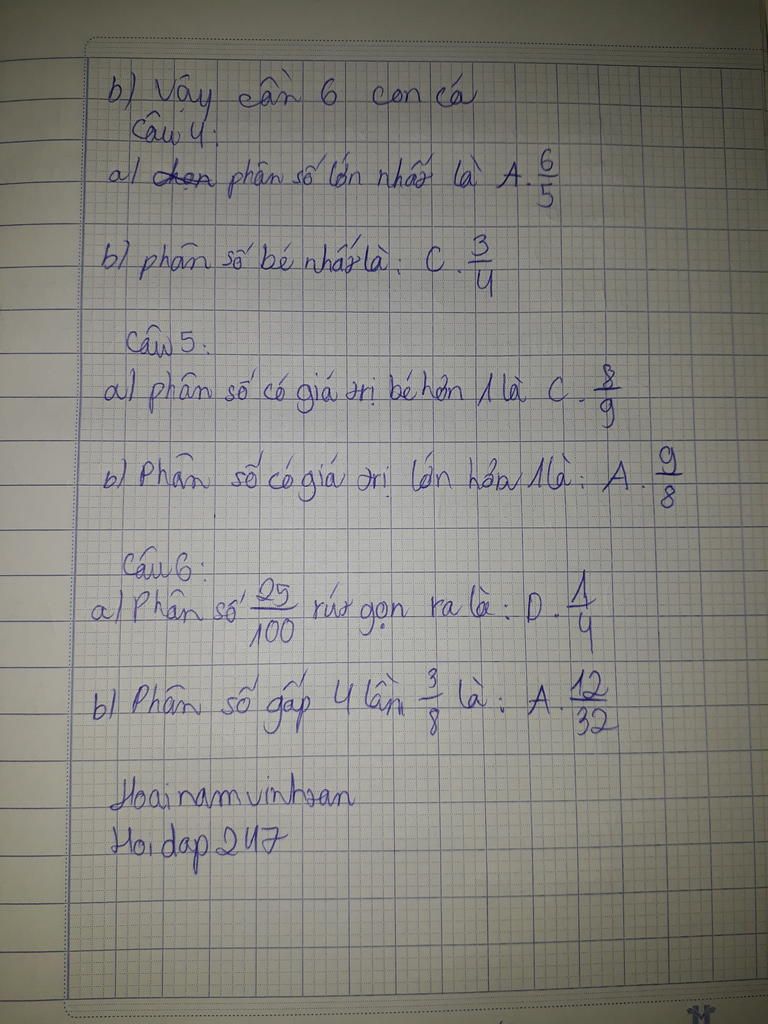 b) Vậy cần 6 con cá
Câu 4:
a) chọn phân số lớn nhất là A. 6/5
b) phân số bé nhất là: C. 3/4
Câu 5:
a) phân số có giá trị bé hơn 1 là C. 8/9
b) Phân số có giá trị lớn hơn 1 là: A. 9/8
Câu 6:
a) Phân số 25/100 rút gọn ra là: D. 1/4
b) Phân số gấp 4 lần 3/8 là: A. 12/32
Hoainamvinhsan
Hoidap247